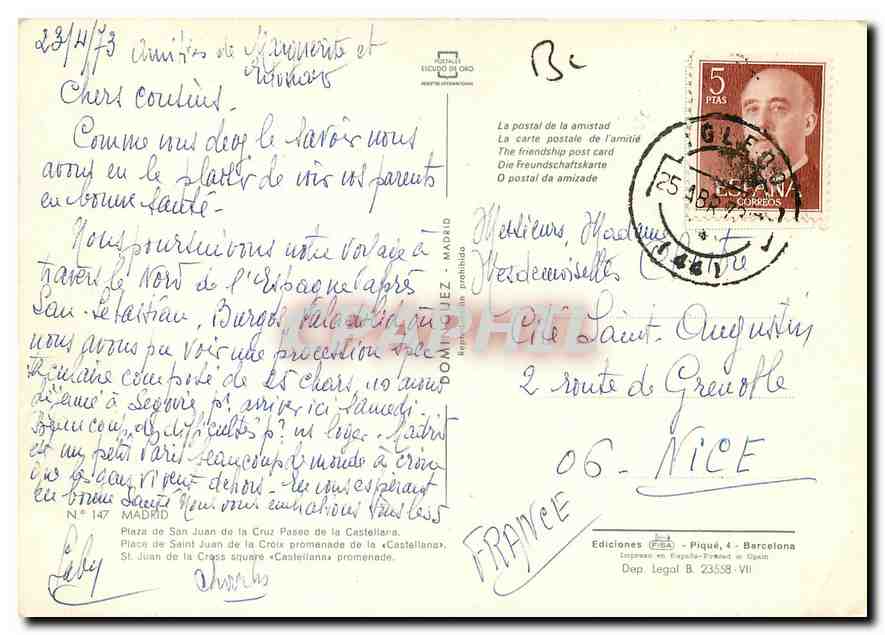 23/4/73 Amitiés de Marguerite et
Chers cousins.
Comme vous devez le savoir nous
avons eu le plaisir de voir vos parents
en bonne santé.
Nous poursuivons notre voyage à
travers le Nord de l'Espagne après
San-Sébastian, Burgos, Valadolid où
nous avons pu voir une procession spec
taculaire composé de 25 chars, 
déjeuné à Ségovie pr arriver ici Samedi.
Beaucoup de difficultés pr se loger. Madrid
est un petit Paris beaucoup de monde à croire
que les gens vivent dehors. En vous espérant
en bonne santé Nous vous embrassons tous les 5
Gaby
Charles
Nº 147 MADRID
Plaza de San Juan de la Cruz Paseo de la Castellana.
Place de Saint Juan de la Croix promenade de la «Castellana».
St. Juan de la Cross square «Castellana» promenade.
POSTALES
ESCUDO DE ORO
DOMINGUEZ - MADRID
Reproducción prohibida
La postal de la amistad
La carte postale de l'amitié
The friendship post card
Die Freundschaftskarte
O postal da amizade
5
PTAS
ESPAÑA
CORREOS
25 ABR 73
Messieurs, Madame
Mesdemoiselles
Cité Saint-Augustin
2 route de Grenoble
06 - NICE
FRANCE
CPAPHIL
Ediciones FISA - Piqué, 4 - Barcelona
Impreso en España-Printed in Spain
Dep. Legal B. 23558-VII